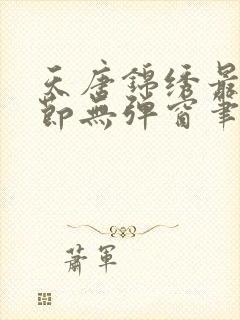 天唐锦绣最
节无弹窗笔
萧军